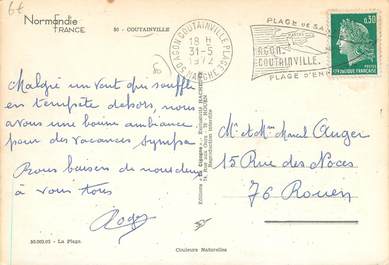 6€
Normandie
FRANCE
50 - COUTAINVILLE
50 AGON COUTAINVILLE PLAGE
18 H
31-5
1972
MANCHE
PLAGE DE SA
AGON
COUTAINVILLE
PLAGE D'EN
0,30
POSTES
RÉPUBLIQUE FRANÇAISE
Malgré un vent qui souffle
en tempête dehors, nous
avons une bonne ambiance
pour des vacances sympa
Bons baisers de nous deux
à vous tous
Roger
Mr et Mme Marcel Auger
15 Rue des Noces
76 Rouen
Editions
Reproduction interdite
50.003.03 - La Plage
Couleurs Naturelles